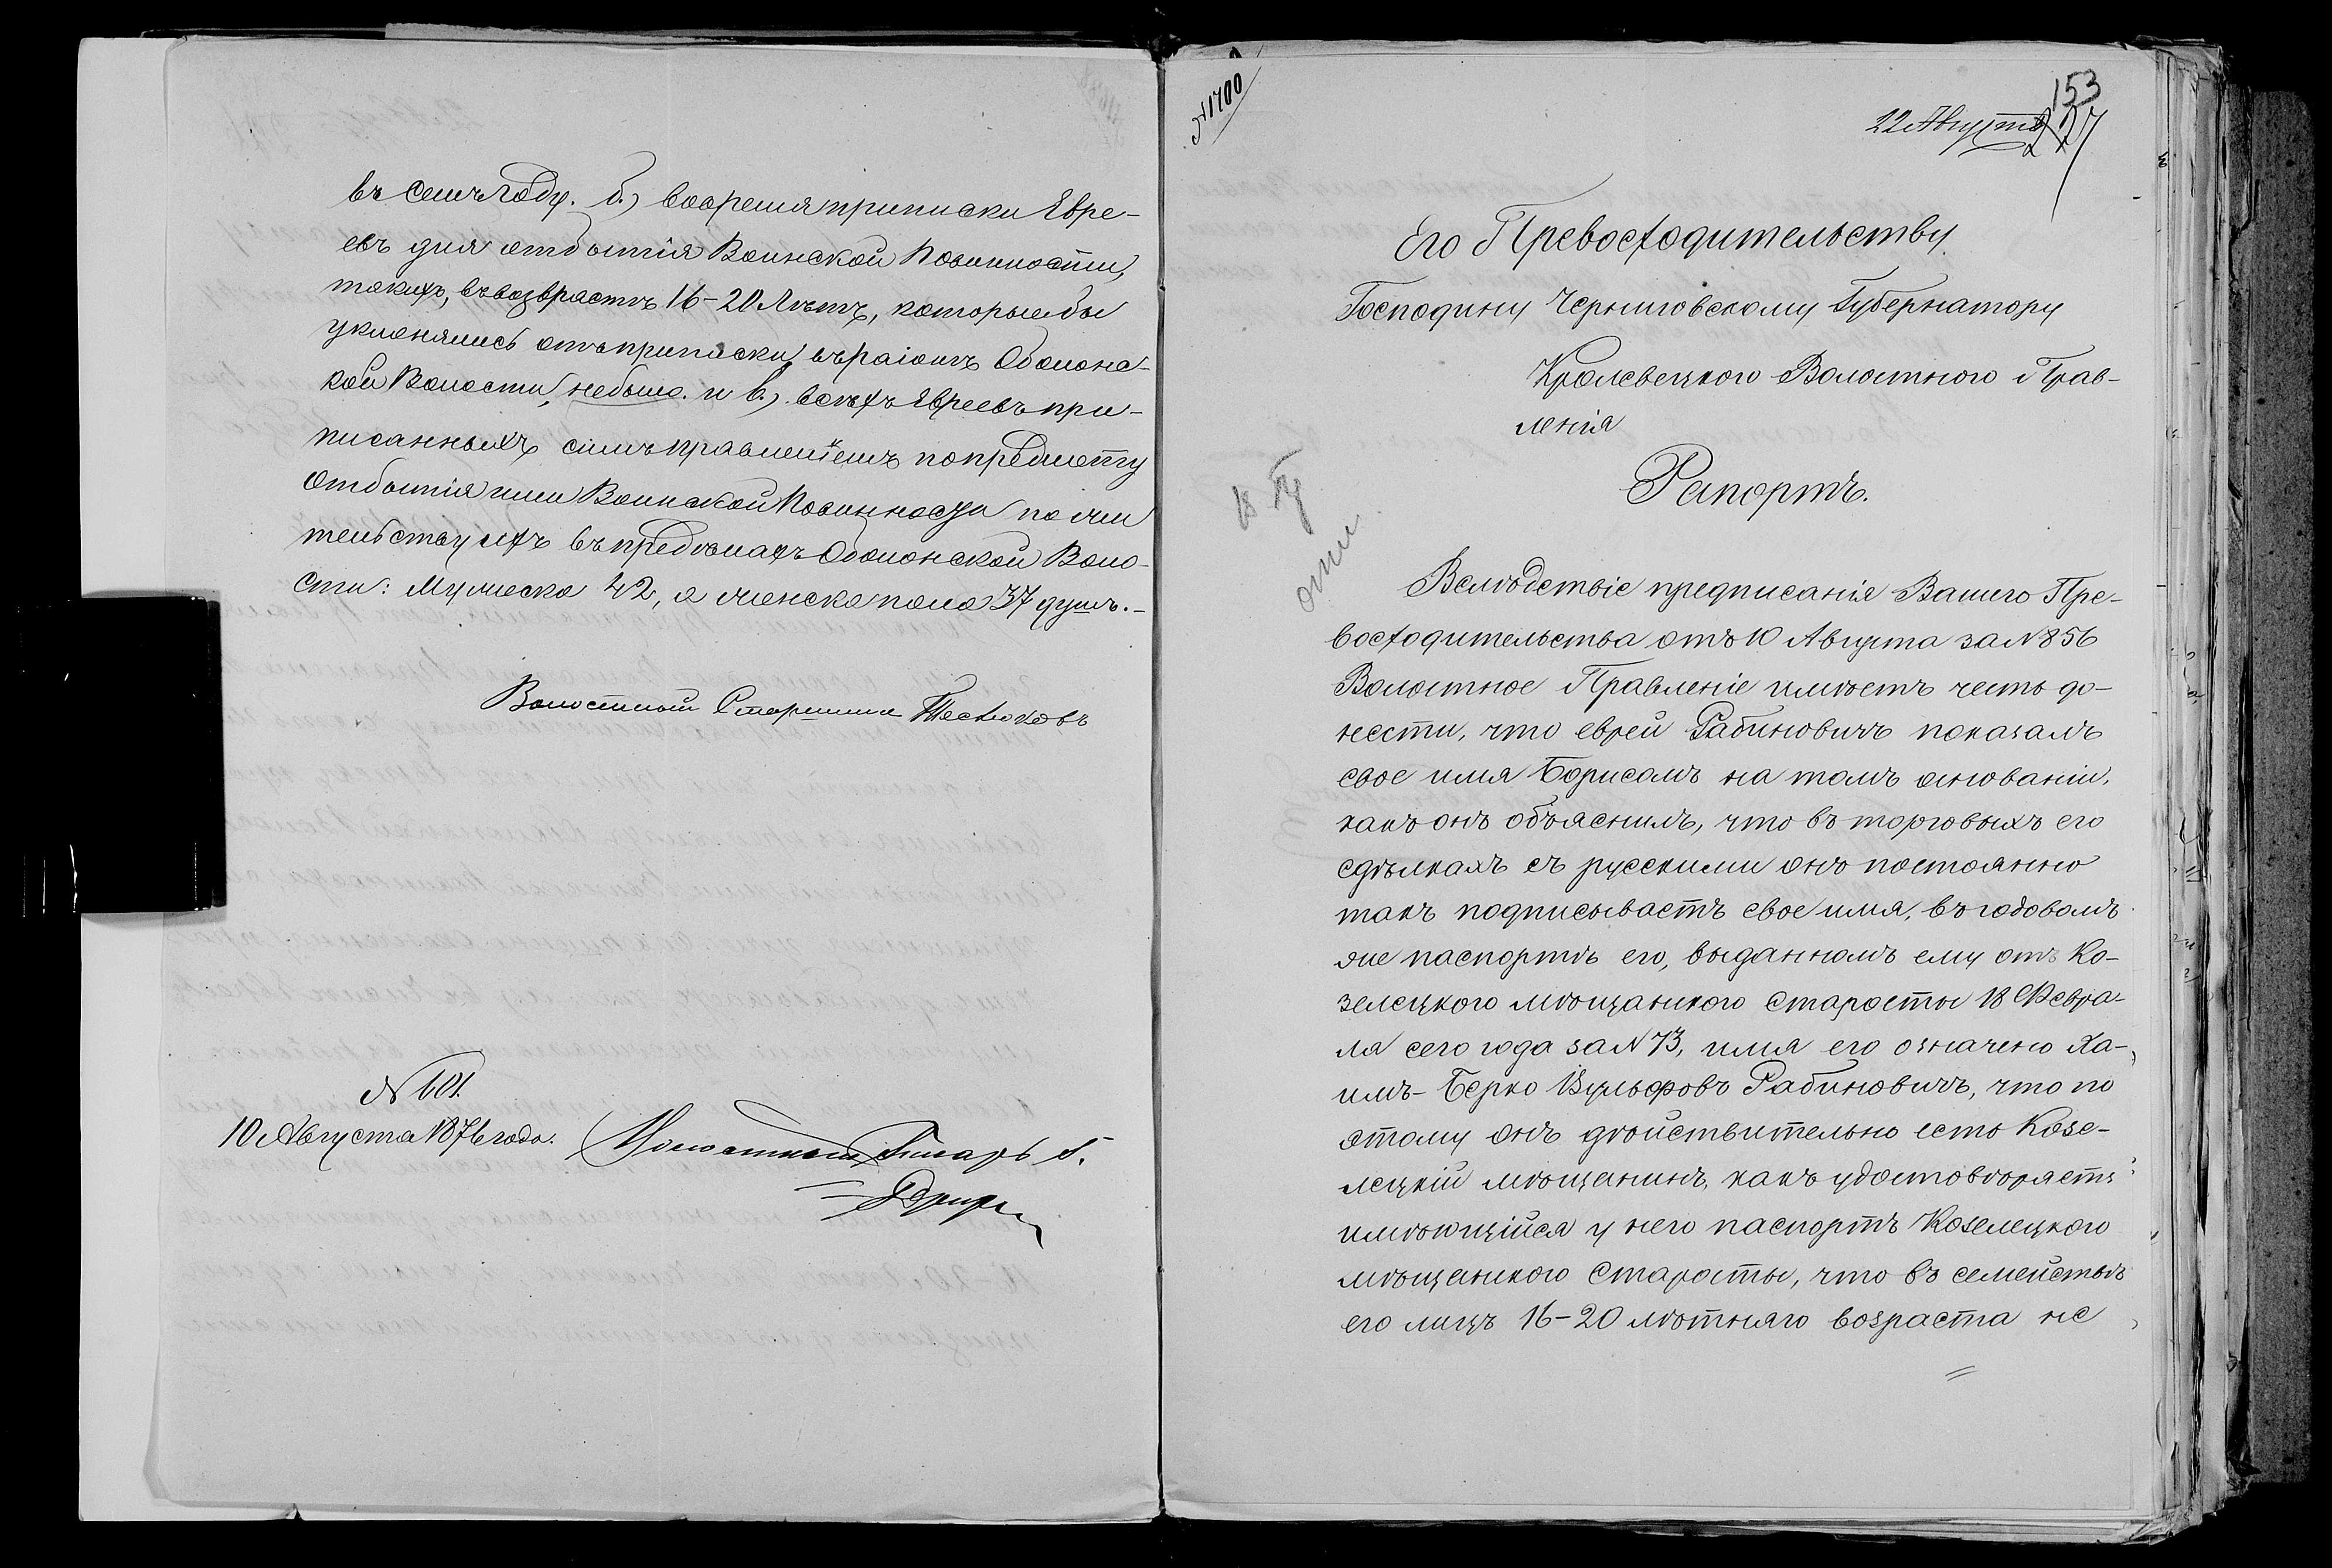 въ семъ году. б.) вовремя приписки Евре-
евъ для отбытія Воинской Повинности,
такихъ, въ возврастѣ 16-20 Лѣтъ, которые бы
уклонялись отъ приписки въ раіонѣ Оболонс-
кой Волости, небыло. и в.) всѣхъ Евреевъ при-
писанныхъ симъ правленіемъ по предмету
Отбытія ими Воинской Повинности по жи
тельству ихъ въ предѣлахъ Оболонской Воло-
сти: Мужеска 42, а женска пола 37 душъ.-
Волостной Старшина
N 601.
10 Августа 1876 года.
Волостной Писарь
N 1700
153
22 Августа
227
Его Превосходительству.
Господину Черниговскому Губернатору
Кролевецкого Волостного Прав-
ленія
Рапортъ.
Вслѣдствіе предписанія Вашего Пре-
восходительства отъ 10 Августа за N 856
Волостное Правленіе имѣетъ честь до-
нести, что еврей Рабиновичъ показалъ
свое имя Борисомъ на томъ основаніи,
какъ онъ объяснилъ, что въ торговыхъ его
сдѣлкахъ съ русскими онъ постоянно
такъ подписываетъ свое имя, въ годовомъ
же паспортѣ его, выданномъ ему отъ Ко-
зелецкого мѣщанского Старосты 18 Февра-
ля сего года за N 73, имя его означено Ха-
имъ-Берко Вульфовъ Рабиновичъ, что по
этому онъ дѣйствительно есть Козе-
лецкій мѣщанинъ, какъ удостовѣряетъ
имѣющійся у него паспортъ Козелецкого
мѣщанского Старосты, что въ семействѣ
его лицъ 16-20 лѣтняго возраста не